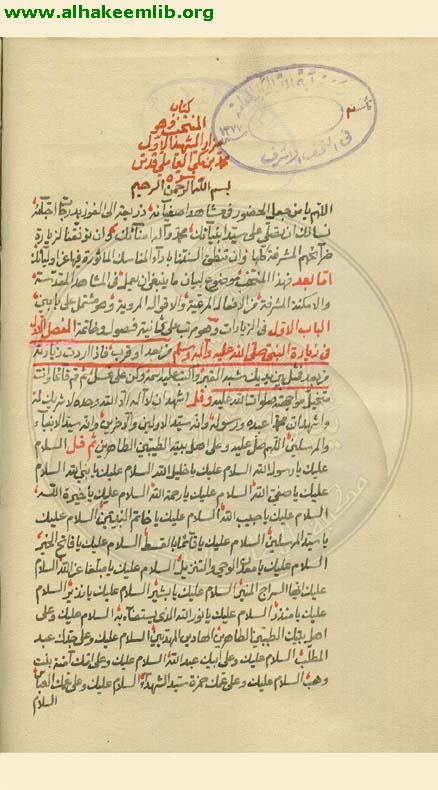 www.alhakeemlib.org
كتاب
المنتخب وهو
مزار الشهيد الاول
محمد بن مكي العاملي قدس
سره
١٣٧٧
في النجف الاشرف
بسم الله الرحمن الرحيم
اللهم يا من جعل الحضور في مشاهد اصفيائه ذريعة الى الفوز بدرجات احبائه
نسالك ان تصلي على سيد انبيائك محمد وآله امنائك وان توفقنا لزيارة
ضرائحهم المشرفة كلها وان تنطق السنتنا باداء المناسك الماثورة فيها عن اوليائك
اما بعد فهذا المنتخب موضوع لبيان ما ينبغي ان يعمل في المشاهد المقدسة
والامكنة المشرفة من الافعال المرغبة والاقوال المروية وهو مشتمل على بابين
الباب الاول في الزيارات وهو مرتب على ثمانية فصول وخاتمة الفصل الاول
في زيارة النبي صلى الله عليه وآله وسلم من بعد او قرب فاذا اردت زيارته
من بعد فمثل بين يديك شبه القبر واكتب عليه اسمه وكن على غسل ثم قم قائما وانت
متخيل مواجهته صلوات الله عليه وقل اشهد ان لا اله الا الله وحده لا شريك له
واشهد ان محمدا عبده ورسوله وانه سيد الاولين والآخرين وانه سيد الانبياء
والمرسلين اللهم صل عليه وعلى اهل بيته الطيبين الطاهرين ثم قل السلام
عليك يا رسول الله السلام عليك يا خليل الله السلام عليك يا نبي الله السلام
عليك يا صفي الله السلام عليك يا رحمة الله السلام عليك يا خيرة الله
السلام عليك يا حبيب الله السلام عليك يا خاتم النبيين السلام عليك
يا سيد المرسلين السلام عليك يا قائما بالقسط السلام عليك يا فاتح الخير
السلام عليك يا معدن الوحي والتنزيل السلام عليك يا مبلغا عن الله السلام
عليك ايها السراج المنير السلام عليك يا بشير السلام عليك يا نذير السلام
عليك يا منذر السلام عليك يا نور الله الذي يستضاء به السلام عليك وعلى
اهل بيتك الطيبين الطاهرين الهادين المهديين السلام عليك وعلى جدك عبد
المطلب السلام عليك وعلى ابيك عبد الله السلام عليك وعلى امك آمنة بنت
وهب السلام عليك وعلى عمك حمزة سيد الشهداء السلام عليك وعلى عمك العباس
السلام